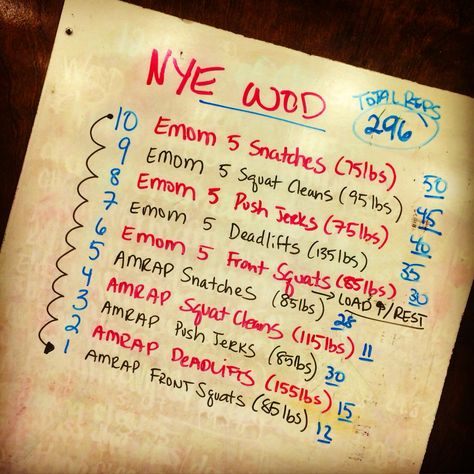 NYE WOD
TOTAL REPS
296
10 EMOM 5 SNATCHES (75lbs) 50
9 EMOM 5 SQUAT CLEANS (95lbs) 45
8 EMOM 5 PUSH JERKS (75lbs) 40
7 EMOM 5 DEADLIFTS (135lbs) 35
6 EMOM 5 FRONT SQUATS (85lbs) 30
→ LOAD ↑/REST
5 AMRAP SNATCHES (85lbs) 28
4 AMRAP SQUAT CLEANS (115lbs) 11
3 AMRAP PUSH JERKS (85lbs) 30
2 AMRAP DEADLIFTS (155lbs) 15
1 AMRAP FRONT SQUATS (85lbs) 12